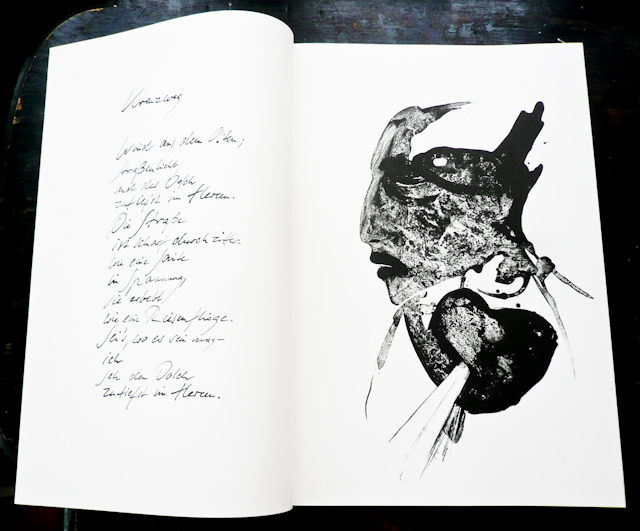 Kreuzweg
Wind aus dem Osten;
Straßenlicht
und der Dolch
zutiefst im Herzen.
Die Straße
ist durchzittert
wie eine Saite
in Spannung,
sie erbebt
wie eine Riesenfliege.
Sei's, wo es sein mag–
ich
seh den Dolch
zutiefst im Herzen.